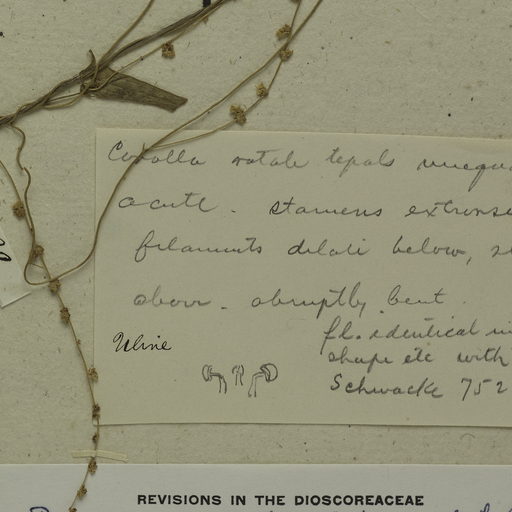 Corolla rotate tepals unequa
acute. Stamens extrorse
filaments dilate below,
above - abruptly bent.
fl. identical in
Uline
shape etc with
Schwacke 752
REVISIONS IN THE DIOSCOREACEAE